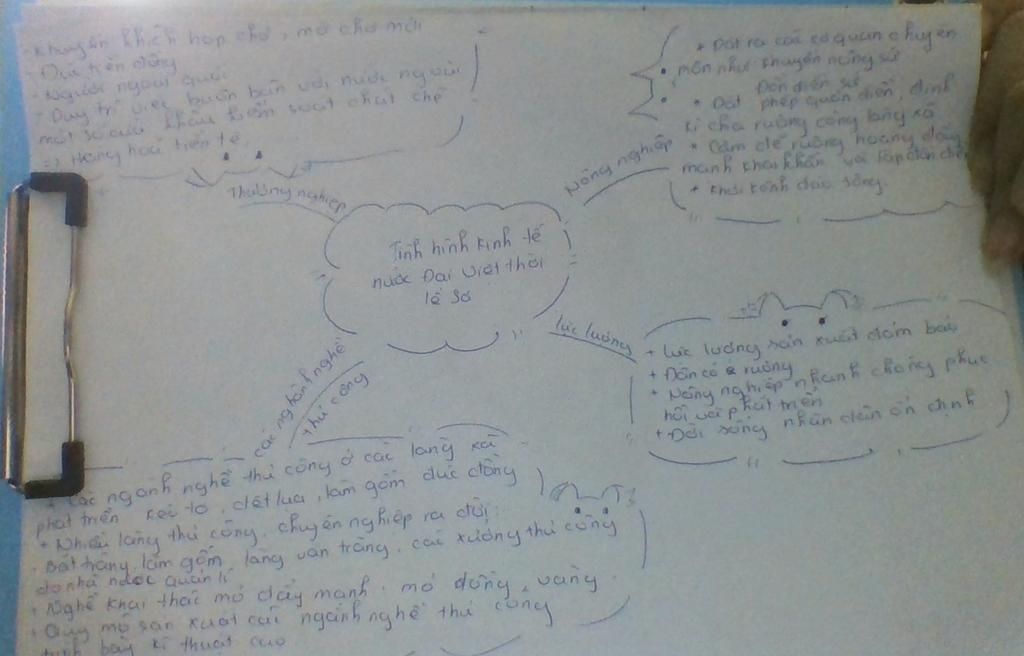 - Khuyến khích họp chợ, mở chợ mới
- Đúc tiền đồng
- Người ngoại quốc
- Duy trì việc buôn bán với nước ngoài
một số cửa khẩu kiểm soát chặt chẽ
=> Hàng hoá tiền tệ
Thương nghiệp
+ Đặt ra các cơ quan chuyên
môn như khuyến nông sứ
Đồn điền sứ
* Đặt phép quân điền, định
kì chia ruộng công làng xã
* Cấm để ruộng hoang đẩy
mạnh khai khẩn và lập đồn điền
+ Khơi kênh đào sông.
Nông nghiệp
Tình hình kinh tế
nước Đại Việt thời
lê sơ
lực lượng
+ Lực lượng sản xuất đảm bảo
+ Dân có ruộng
+ Nông nghiệp nhanh chóng phục
hồi và phát triển
+ Đời sống nhân dân ổn định
các nghành nghề
thủ công
+ Các ngành nghề thủ công ở các làng xã
phát triển kéo tơ, dệt lụa, làm gốm đúc đồng
+ Nhiều làng thủ công, chuyên nghiệp ra đời:
Bát tràng làm gốm, làng vân tràng, các xưởng thủ công
do nhà nước quản lí
+ Nghề khai thác mỏ đẩy mạnh. mỏ đồng, vàng
+ Quy mô sản xuất các ngành nghề thủ công
kĩ thuật cao